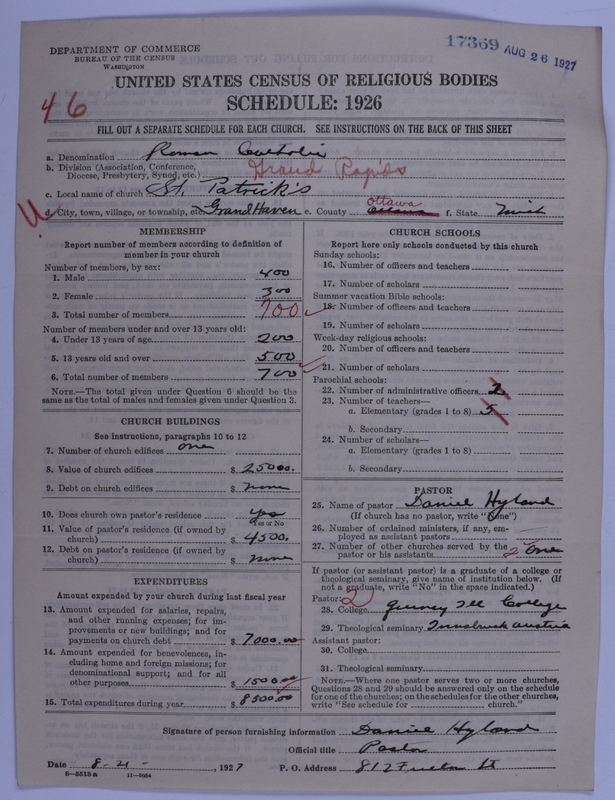 17369 AUG 26 1927
DEPARTMENT OF COMMERCE
BUREAU OF THE CENSUS
WASHINGTON
UNITED STATES CENSUS OF RELIGIOUS BODIES
SCHEDULE: 1926
46
FILL OUT A SEPARATE SCHEDULE FOR EACH CHURCH. SEE INSTRUCTIONS ON THE BACK OF THIS SHEET
a. Denomination Roman Catholic
b. Division (Association, Conference, Diocese, Presbytery, Synod, etc.) Grand Rapids
c. Local name of church St. Patrick's
d. City, town, village, or township, etc. Grand Haven e. County Ottawa f. State Mich
MEMBERSHIP
Report number of members according to definition of
member in your church
Number of members, by sex:
1. Male 400
2. Female 300
3. Total number of members 700
Number of members under and over 13 years old:
4. Under 13 years of age 200
5. 13 years old and over 500
6. Total number of members 700
NOTE.—The total given under Question 6 should be the
same as the total of males and females given under Question 3.
CHURCH BUILDINGS
See instructions, paragraphs 10 to 12
7. Number of church edifices one
8. Value of church edifices $ 25000.
9. Debt on church edifices $ none
10. Does church own pastor's residence yes
Yes or No
11. Value of pastor's residence (if owned by
church) $ 4500.
12. Debt on pastor's residence (if owned by
church) $ none
EXPENDITURES
Amount expended by your church during last fiscal year
13. Amount expended for salaries, repairs,
and other running expenses; for im-
provements or new buildings; and for
payments on church debt $ 7000.00
14. Amount expended for benevolences, in-
cluding home and foreign missions; for
denominational support; and for all
other purposes $ 1500.00
15. Total expenditures during year $ 8500.00
CHURCH SCHOOLS
Report here only schools conducted by this church
Sunday schools:
16. Number of officers and teachers
17. Number of scholars
Summer vacation Bible schools:
18. Number of officers and teachers
19. Number of scholars
Week-day religious schools:
20. Number of officers and teachers
21. Number of scholars
Parochial schools:
22. Number of administrative officers 2
23. Number of teachers—
a. Elementary (grades 1 to 8) 5
b. Secondary
24. Number of scholars—
a. Elementary (grades 1 to 8)
b. Secondary
PASTOR
25. Name of pastor Daniel Hyland
(If church has no pastor, write "None")
26. Number of ordained ministers, if any, em-
ployed as assistant pastors
27. Number of other churches served by the
pastor or his assistants 2 one
If pastor (or assistant pastor) is a graduate of a college or
theological seminary, give name of institution below. (If
not a graduate, write "No" in the space indicated.)
Pastor: 2
28. College Quincy Ill College
29. Theological seminary Innsbruck Austria
Assistant pastor:
30. College
31. Theological seminary
NOTE.—Where one pastor serves two or more churches,
Questions 28 and 29 should be answered only on the schedule
for one of the churches; on the schedules for the other churches,
write "See schedule for church."
Signature of person furnishing information Daniel Hyland
Official title Pastor
Date 8-21-, 1927 P. O. Address 812 Fulton St
8—5518 a 11—9034